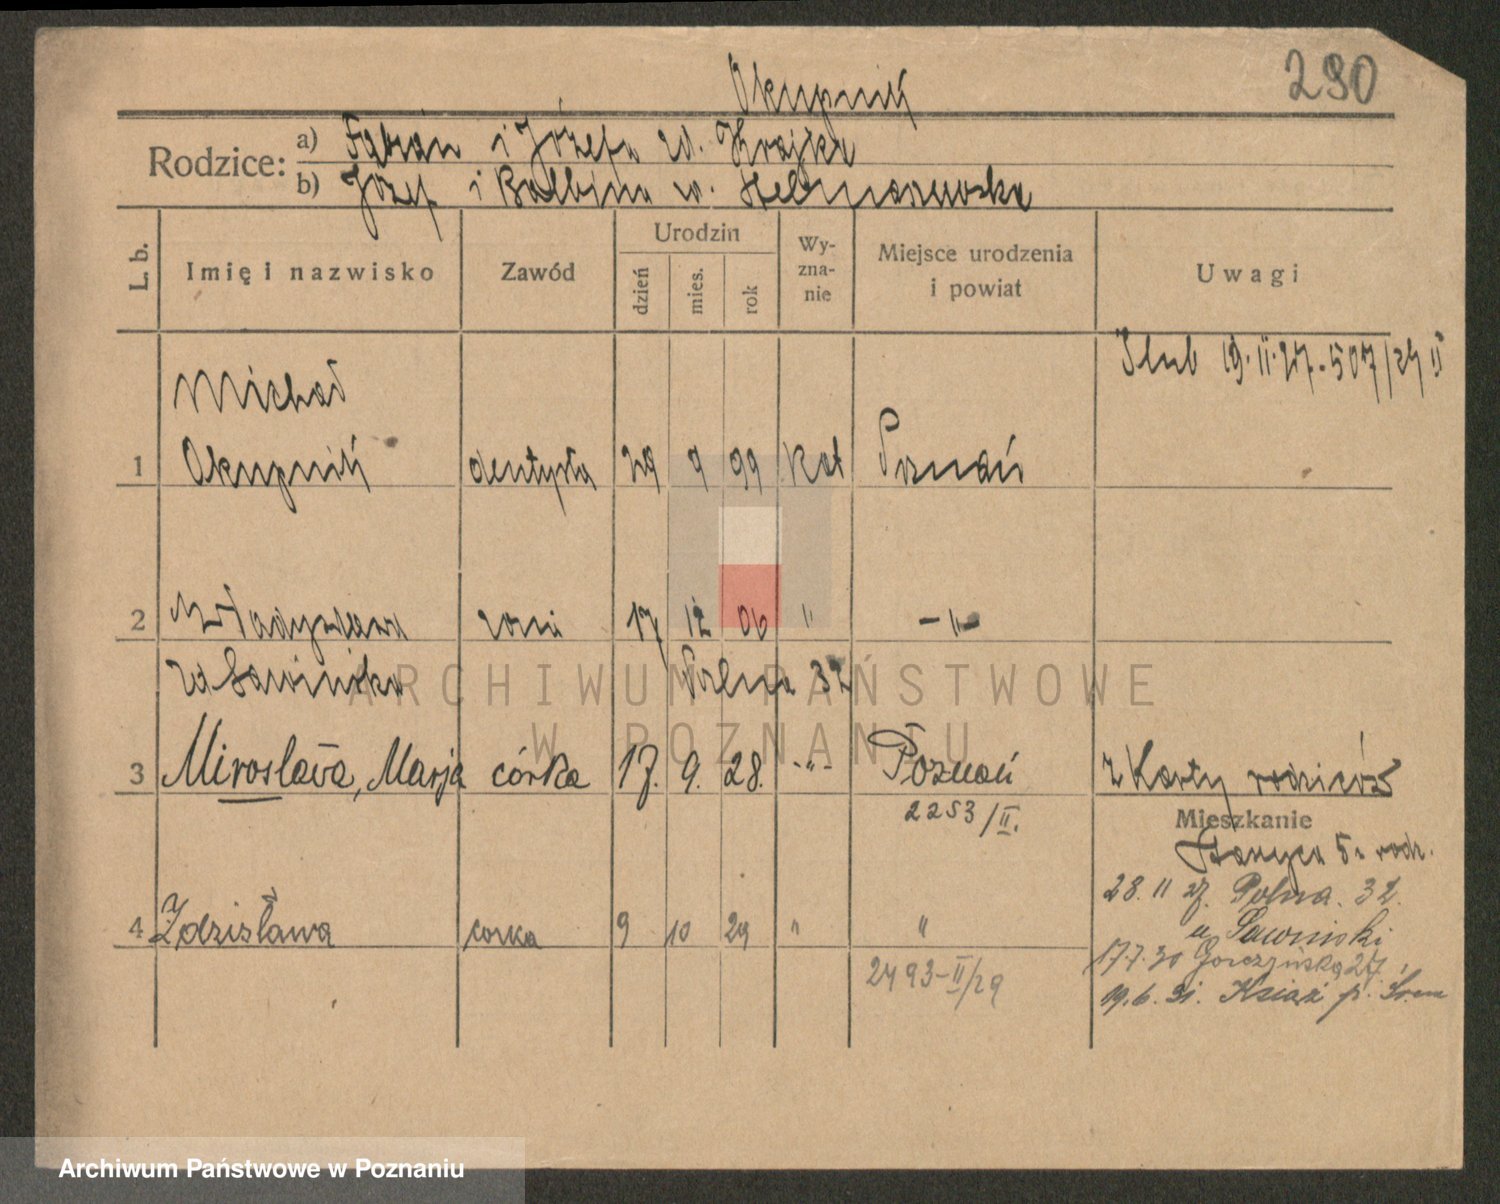 290
Okupnik
Rodzice: a) Fabian i Józefa zd. Krajka
b) Józef i Balbina zd.
L. b. Imię i nazwisko Zawód Urodzin dzień mies. rok Wyznanie Miejsce urodzenia i powiat Uwagi
Ślub 19.II.27. 507/27 II
Michał
1 Okupnik dentysta 29 9 99 kat Poznań
2 Władysława żona 17 12 06 " -"-
zd. Sawińska Polna 32
3 Mirosława, Marja córka 17. 9. 28. -"- Poznań z Karty rodziców
2253/II.
Mieszkanie
5 u rodz.
28.11 27. Polna. 32.
u Sawiński
4 Zdzisława corka 9 10 29 " "
17.7.30 Gorczyńska 27
2493-II/29
19.6.31. Książ p. Śrem
ARCHIWUM PAŃSTWOWE
W POZNANIU
Archiwum Państwowe w Poznaniu